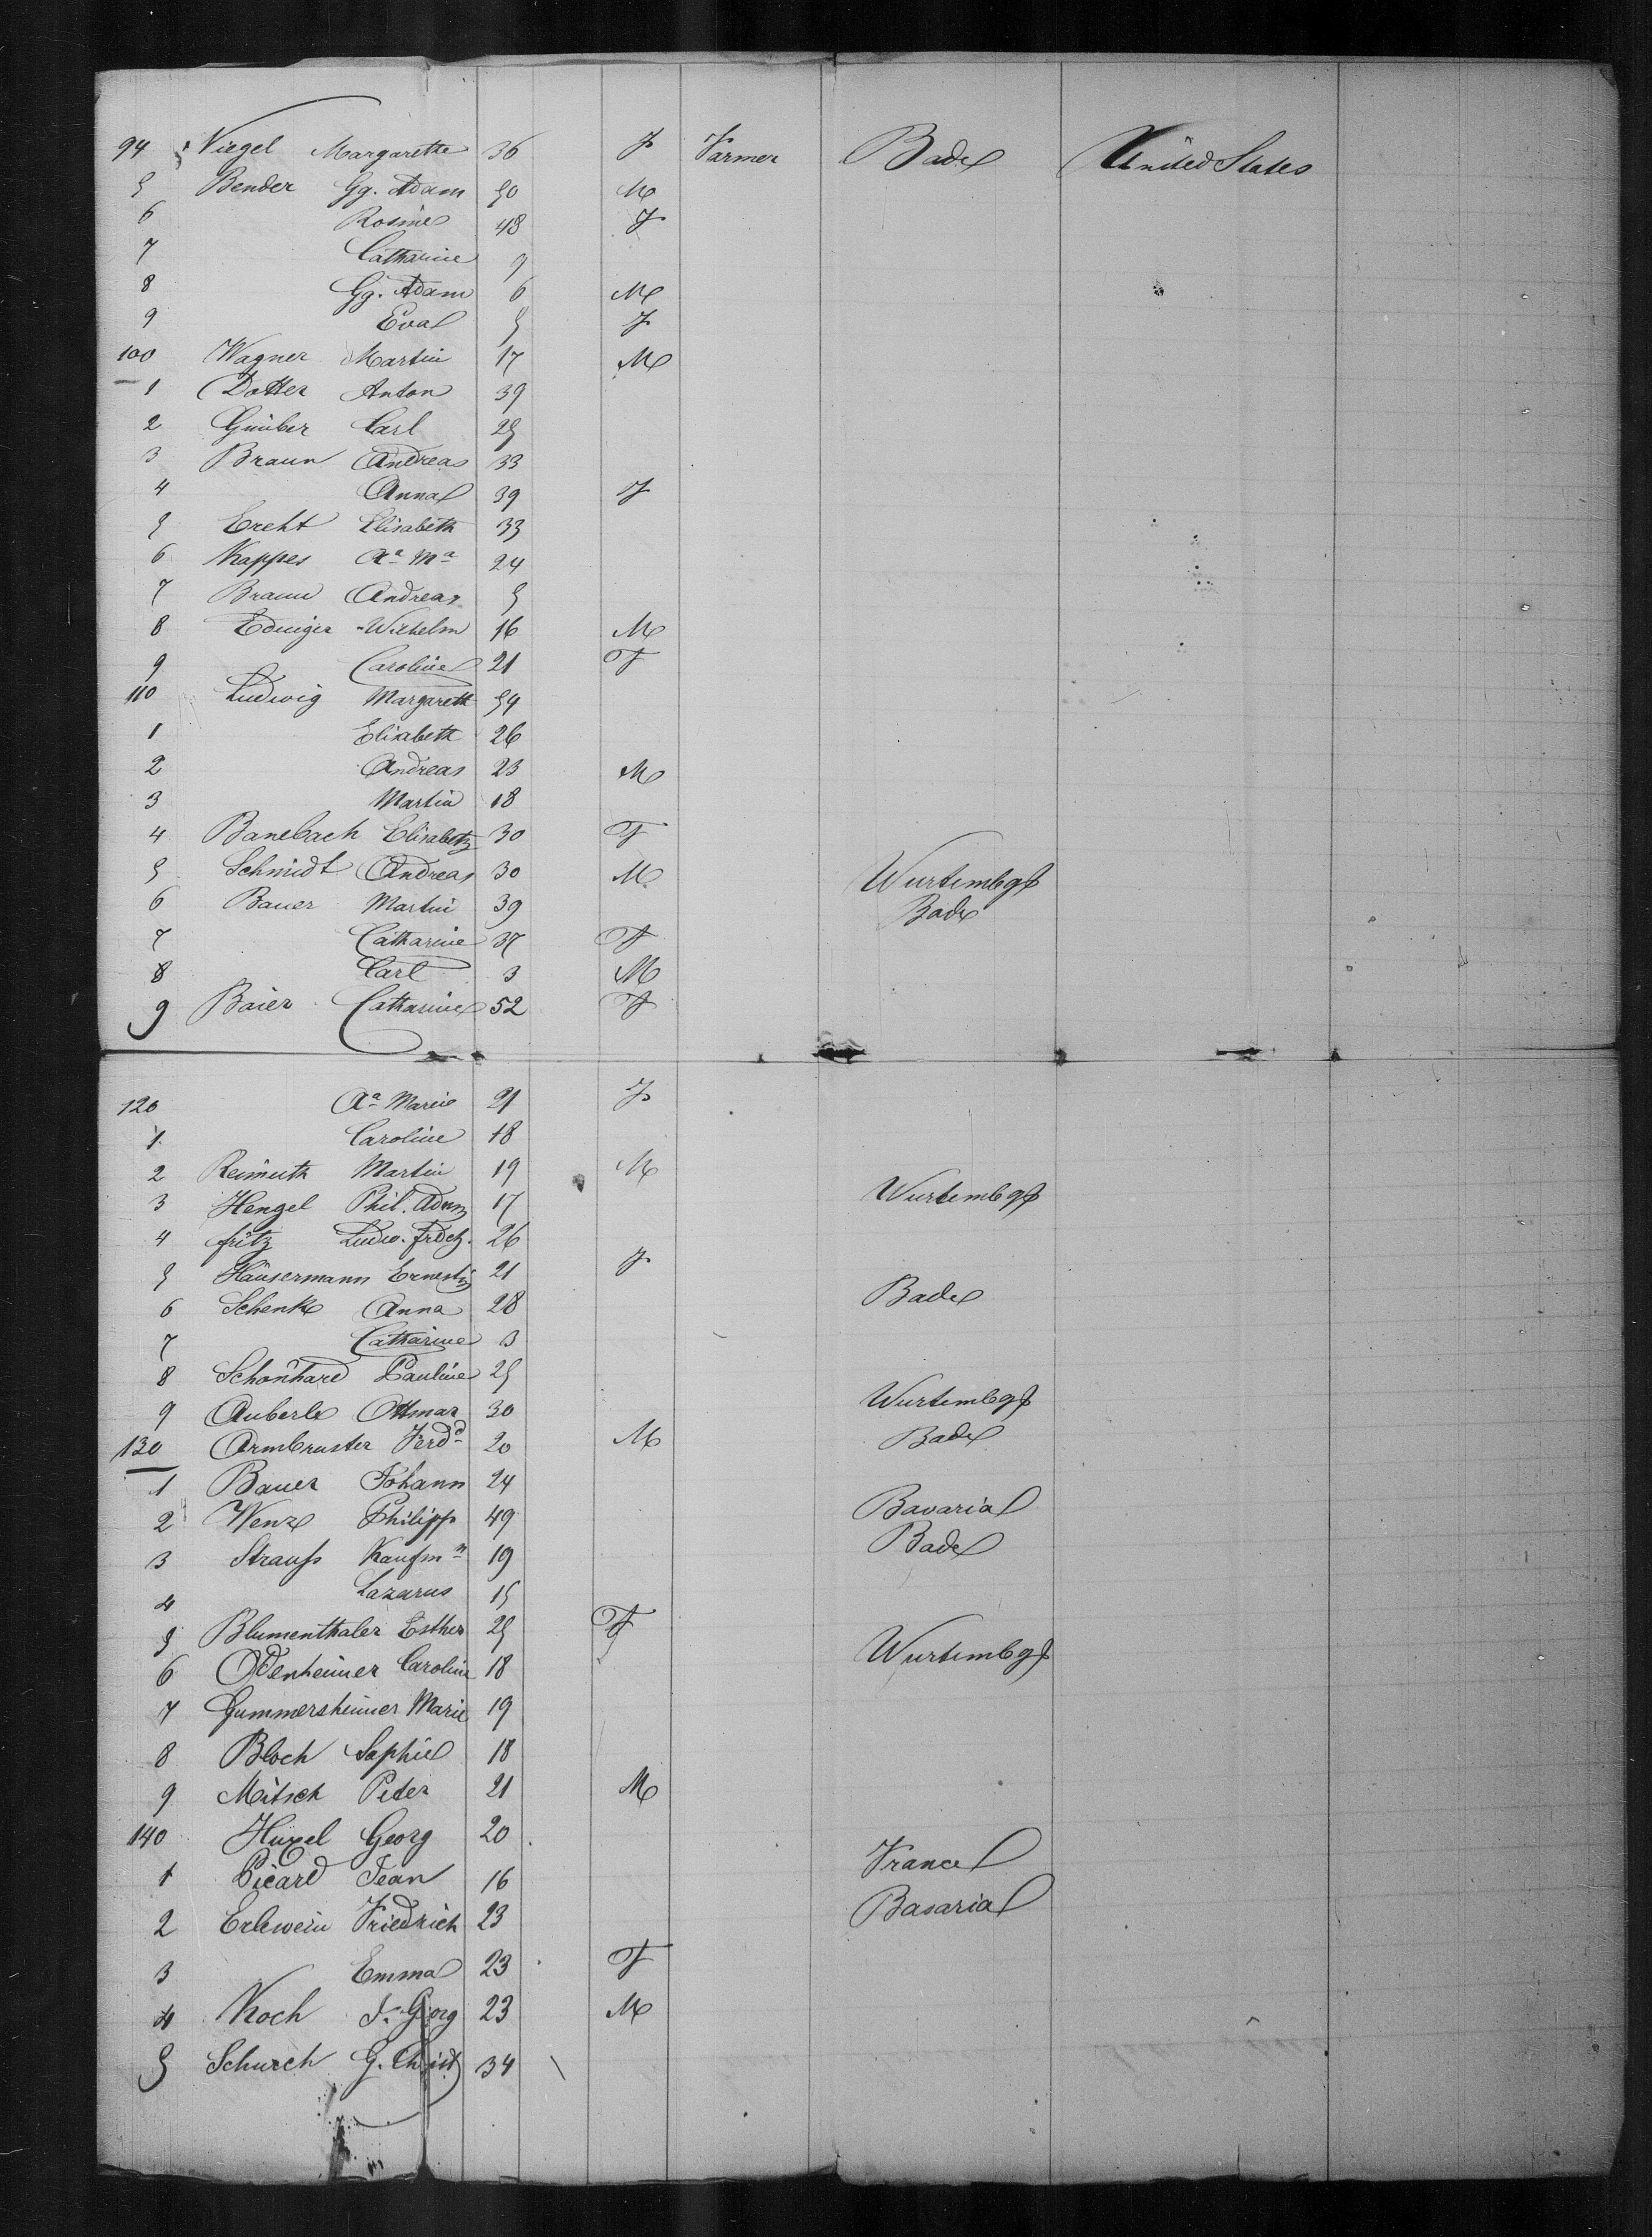 94 Niegel Margarethe 36 F Farmer Bade United States
5 Bender Gg. Adam 50 M
6 Rosine 48 F
7 Catharine 9
8 Gg. Adam 6 M
9 Eva 5 F
100 Wagner Martin 17 M
1 Dotter Anton 39
2 Guiber Carl 25
3 Braun Andreas 33
4 Anna 39 F
5 Ereht Elisabeth 33
6 Kappes Aa Ma 24
7 Braun Andreas 5
8 Edinger Wilhelm 16 M
9 Caroline 21 F
110 Ludwig Margareth 54
1 Elisabeth 26
2 Andreas 23 M
3 Martin 18
4 Banebach Elisabeth 30 F
5 Schmidt Andreas 30 M Wurtembg
6 Bauer Martin 39 Bade
7 Catharine 37 F
8 Carl 3 M
9 Baier Catharine 52 F
120 Aa Marie 21 F
1 Caroline 18
2 Reimuth Martin 19 M
3 Hengel Phil. Adam 17 Wurtembg
4 fritz Ludw. frdch. 26
5 Häusermann Ernestin 21 F
6 Schenk Anna 28 Bade
7 Catharine 3
8 Schönhard Pauline 25
9 Auberle Ottmar 30 Wurtembg
130 Armbruster Ferdd 20 M Bade
1 Bauer Johann 24
2 Wenz Philipp 49 Bavaria
3 Strauss Kaufmn 19 Bade
4 Lazarus 15
5 Blumenthaler Esther 25 F
6 Odenheimer Caroline 18 Wurtembg
7 Gummersheimer Marie 19
8 Bloch Sophie 18
9 Mitsch Peter 21 M
140 Huxel Georg 20
1 Picard Jean 16 France
2 Erlewein Friedrich 23 Bavaria
3 Emma 23 F
4 Koch J. Georg 23 M
5 Schurch G. Christ 34